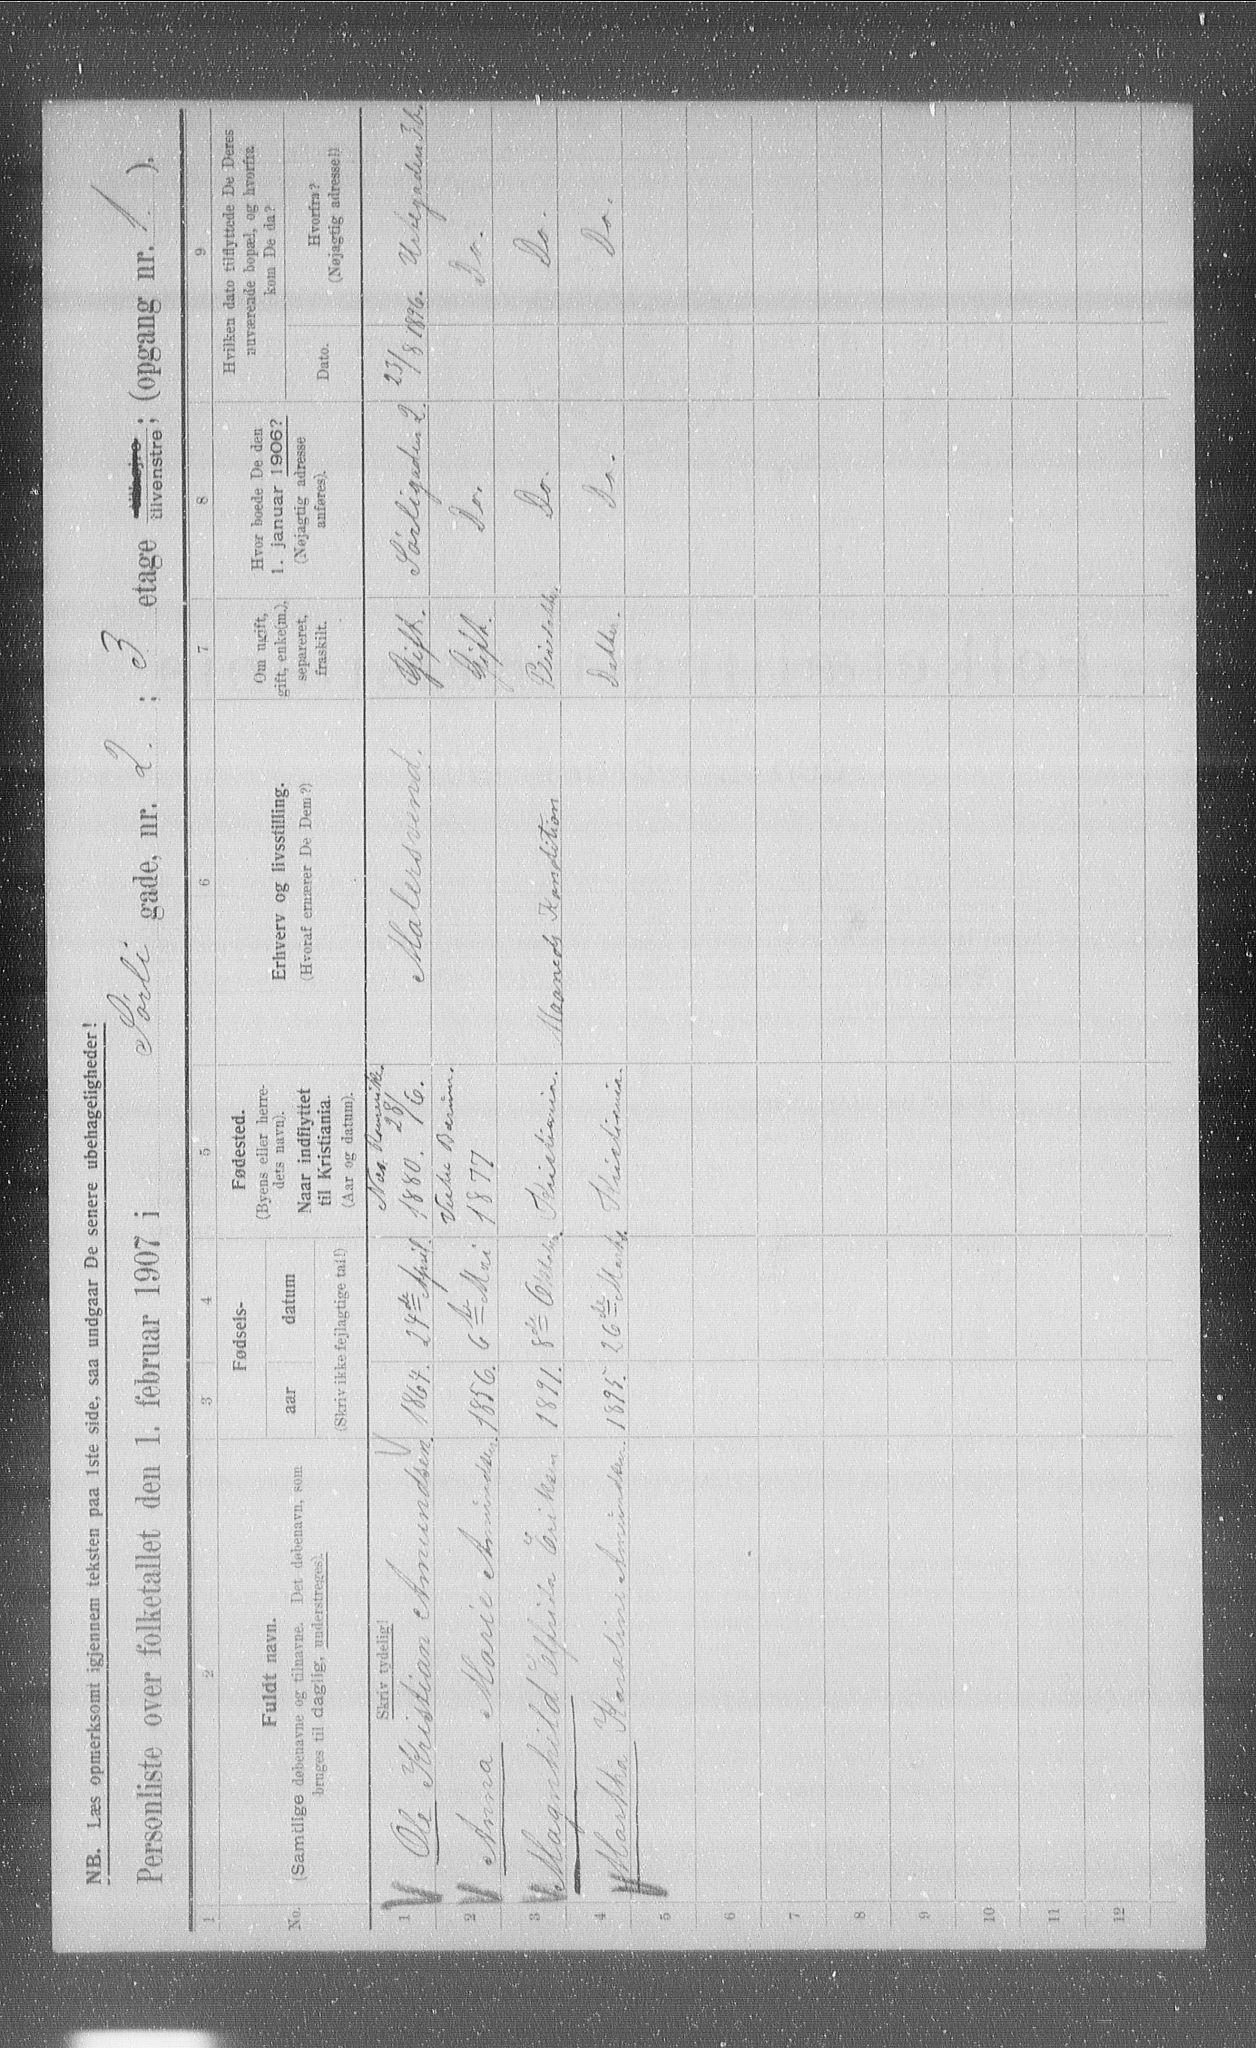 NB. Læs opmerksomt igjennem teksten paa 1ste side, saa undgaar De senere ubehageligheder!
Personliste over folketallet den 1. februar 1907 i Sörli gade, nr. 2. ; 3 etage tilvenstre; (opgang nr. 1. ).
1 2 3 4 5 6 7 8 9
No.
Fuldt navn.
(Samtlige døbenavne og tilnavne. Det døbenavn, som
bruges til daglig, understreges).
Fødsels-
aar datum
(Skriv ikke fejlagtige tal!)
Fødested.
(Byens eller herre-
dets navn).
Naar indflyttet
til Kristiania.
(Aar og datum).
Erhverv og livsstilling.
(Hvoraf ernærer De Dem?)
Om ugift,
gift, enke(m.),
separeret,
fraskilt.
Hvor boede De den
1. januar 1906?
(Nøjagtig adresse
anføres).
Hvilken dato tilflyttede De Deres
nuværende bopæl, og hvorfra
kom De da?
Dato.
Hvorfra?
(Nøjagtig adresse!)
Skriv tydelig!
Nes Romerike.
1 Ole Kristian Amundsen. 1864. 24de April. 1880. 28/6. Malersvend. Gift. Sörligaden 2. 23/8 1896. Urtegaden 36.
Vestre Bærum.
2 Anna Marie Amundsen. 1856. 6te Mai 1877 Gift. Do. Do.
3 Magnhild Eriksen 1891. 8de Kristiania. Maaneds Kondition Do. Do.
4 Martha Karoline Amundsen. 1895. 26de Marts. Kristiania. Datter. Do. Do.
5
6
7
8
9
10
11
12